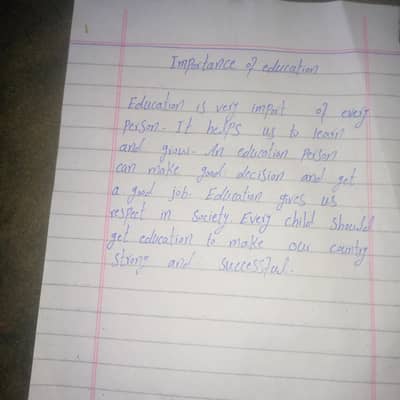 Importance of education
Education is very import of every
person. It helps us to learn
and grow. An education person
can make good decision and get
a good job. Education gives us
respect in Society Every child should
get education to make our country
strong and successful.